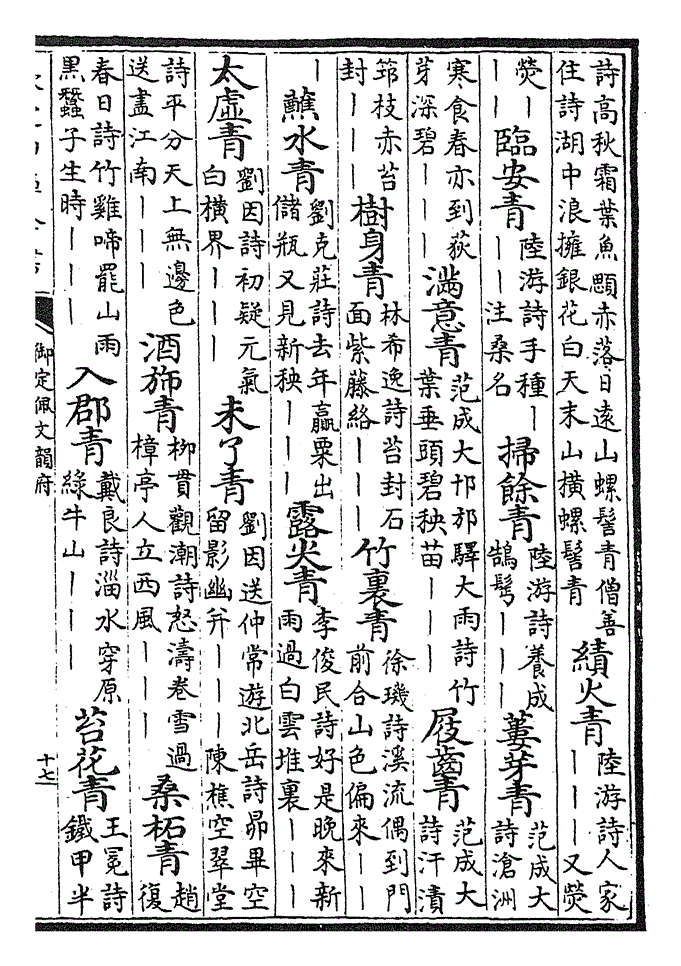 詩高秋霜葉魚顋赤落日遠山螺髻青僧善
住詩湖中浪擁銀花白天末山橫螺髻青
績火青
陸游詩人家
｜｜｜又熒
熒｜
｜｜
臨安青
陸游詩手種｜
｜｜注桑名
掃餘青
陸游詩養成
鵠髩｜｜｜
蔞芽青
范成大
詩滄洲
寒食春亦到荻
芽深碧｜｜｜
滿意青
范成大邛邡驛大雨詩竹
葉垂頭碧秧苗｜｜｜
屐齒青
范成大
詩汗漬
筇枝赤苔
封｜｜｜
樹身青
林希逸詩苔封石
面紫藤絡｜｜｜
竹裏青
徐璣詩溪流偶到門
前合山色偏來｜｜
｜
蘸水青
劉克莊詩去年贏粟出
儲瓶又見新秧｜｜｜
露尖青
李俊民詩好是晚來新
雨過白雲堆裏｜｜｜
太虛青
劉因詩初疑元氣
白橫界｜｜｜
未了青
劉因送仲常游北岳詩昴畢空
留影幽并｜｜｜陳樵空翠堂
詩平分天上無邊色
送盡江南｜｜｜
酒斾青
柳貫觀潮詩怒濤卷雪過
樟亭人立西風｜｜｜
桑柘青
趙
復
春日詩竹雞啼罷山雨
黑蠶子生時｜｜｜
入郡青
戴良詩淄水穿原
綠牛山｜｜｜
苔花青
王冕詩
鐵甲半
御定佩文韻府
十七